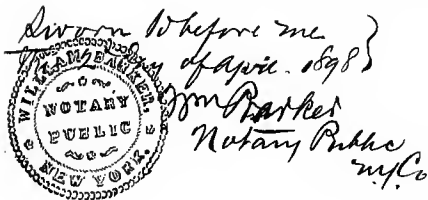 Sworn to before me
day of April. 1898
Wm Barker
Notary Public
N.Y. Co
WILLIAM BARKER,
NOTARY
PUBLIC
NEW YORK.